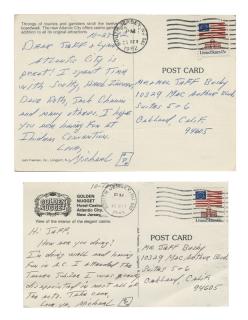 Throngs of tourists and gamblers stroll the famous
boardwalk. The New Atlantic City offers casino gambling in
addition to all its original attractions.
Dear Jeff + Lynn
Atlantic City is
great! I spent time
with Scotty,
Dave Roth, Jack Chanin
and many others. I hope
you are having fun at
Convention.
Love,
Michael
PM
1982
USA 20c
POST CARD
Mr + Mrs Jeff Busby
10329 Mac Arthur Blvd
Suites 5+6
Oakland Calif.
94605
GOLDEN
NUGGET
GOLDEN
NUGGET
Hotel-Casino
Atlantic City,
New Jersey.
View of the interior of the elegant casino.
Hi Jeff,
How are you doing?
I'm doing well and having
fun in A.C. I attended the
Tannen Jubilee I was greatly
disappointed in most all of
the acts. Take care.
Love ya, Michael
PM
POST CARD
Mr Jeff Busby
10329 Mac Arthur Blvd
Suites 5+6
Oakland, Calif.
94605